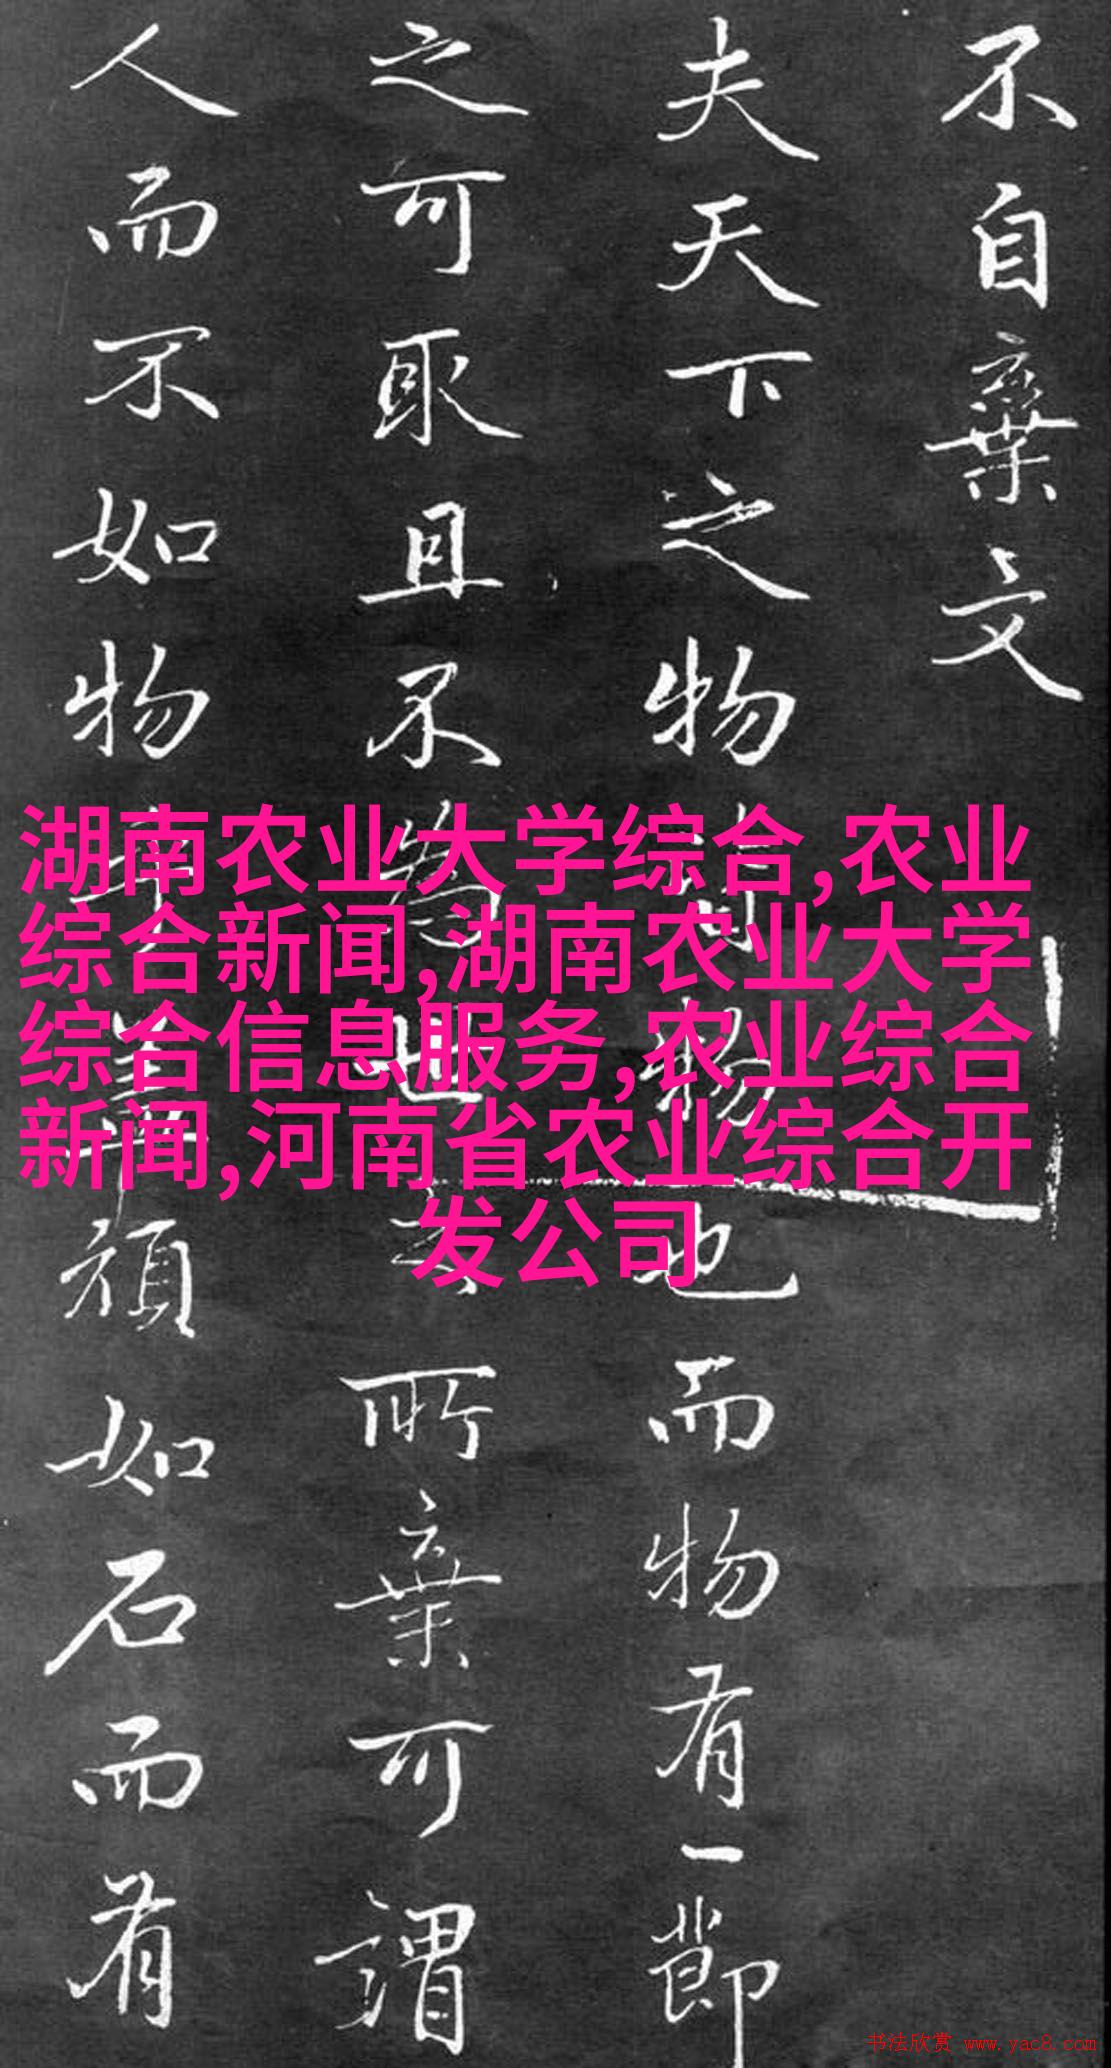 不自棄文
夫天下之物皆物也而物有一節
之可取且不為世之所棄可謂
人而不如物乎蓋頑如石而有
湖南农业大学综合,农业
综合新闻,湖南农业大学
综合信息服务,农业综合
新闻,河南省农业综合开
发公司
书法欣赏 www.yac8.com